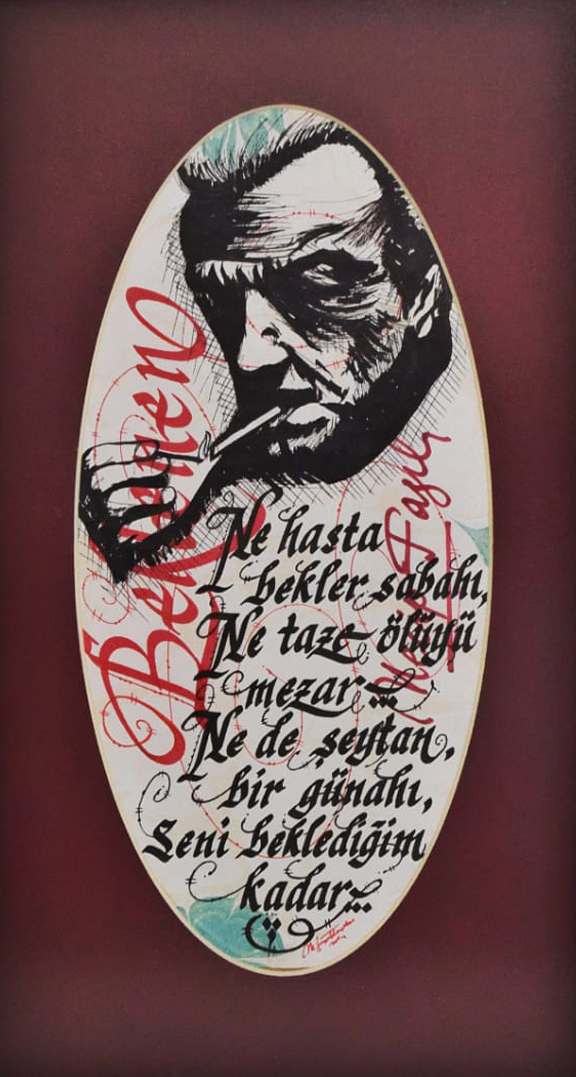 Beklenen
Necip Fazıl
Ne hasta
bekler sabahı,
Ne taze ölüyü
mezar...
Ne de şeytan,
bir günahı,
Seni beklediğim
kadar...